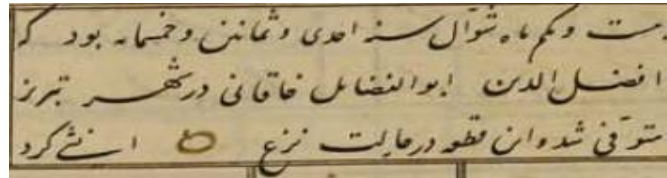 بیست و یکم ماه شوال سنه احدی و ثمانین و خمسمایه بود که
افضل الدین ابوالفضایل خاقانی در شهر تبریز
متوفی شد و این قطعه در حالت نزع انشی کرد